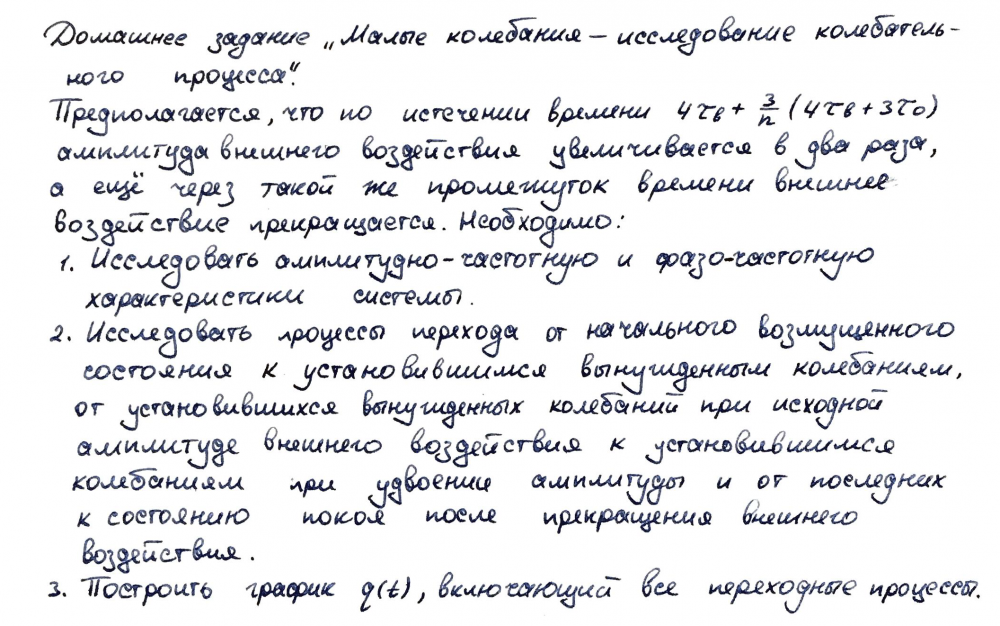 Домашнее задание „Малые колебания – исследование колебатель-
ного процесса".
Предполагается, что по истечении времени 4τв + 3/n (4τв + 3τ0)
амплитуда внешнего воздействия увеличивается в два раза,
а ещё через такой же промежуток времени внешнее
воздействие прекращается. Необходимо:
1. Исследовать амплитудно-частотную и фазо-частотную
характеристики системы.
2. Исследовать процессы перехода от начального возмущенного
состояния к установившимся вынужденным колебаниям,
от установившихся вынужденных колебаний при исходной
амплитуде внешнего воздействия к установившимся
колебаниям при удвоении амплитуды и от последних
к состоянию покоя после прекращения внешнего
воздействия.
3. Построить график q(t), включающий все переходные процессы.